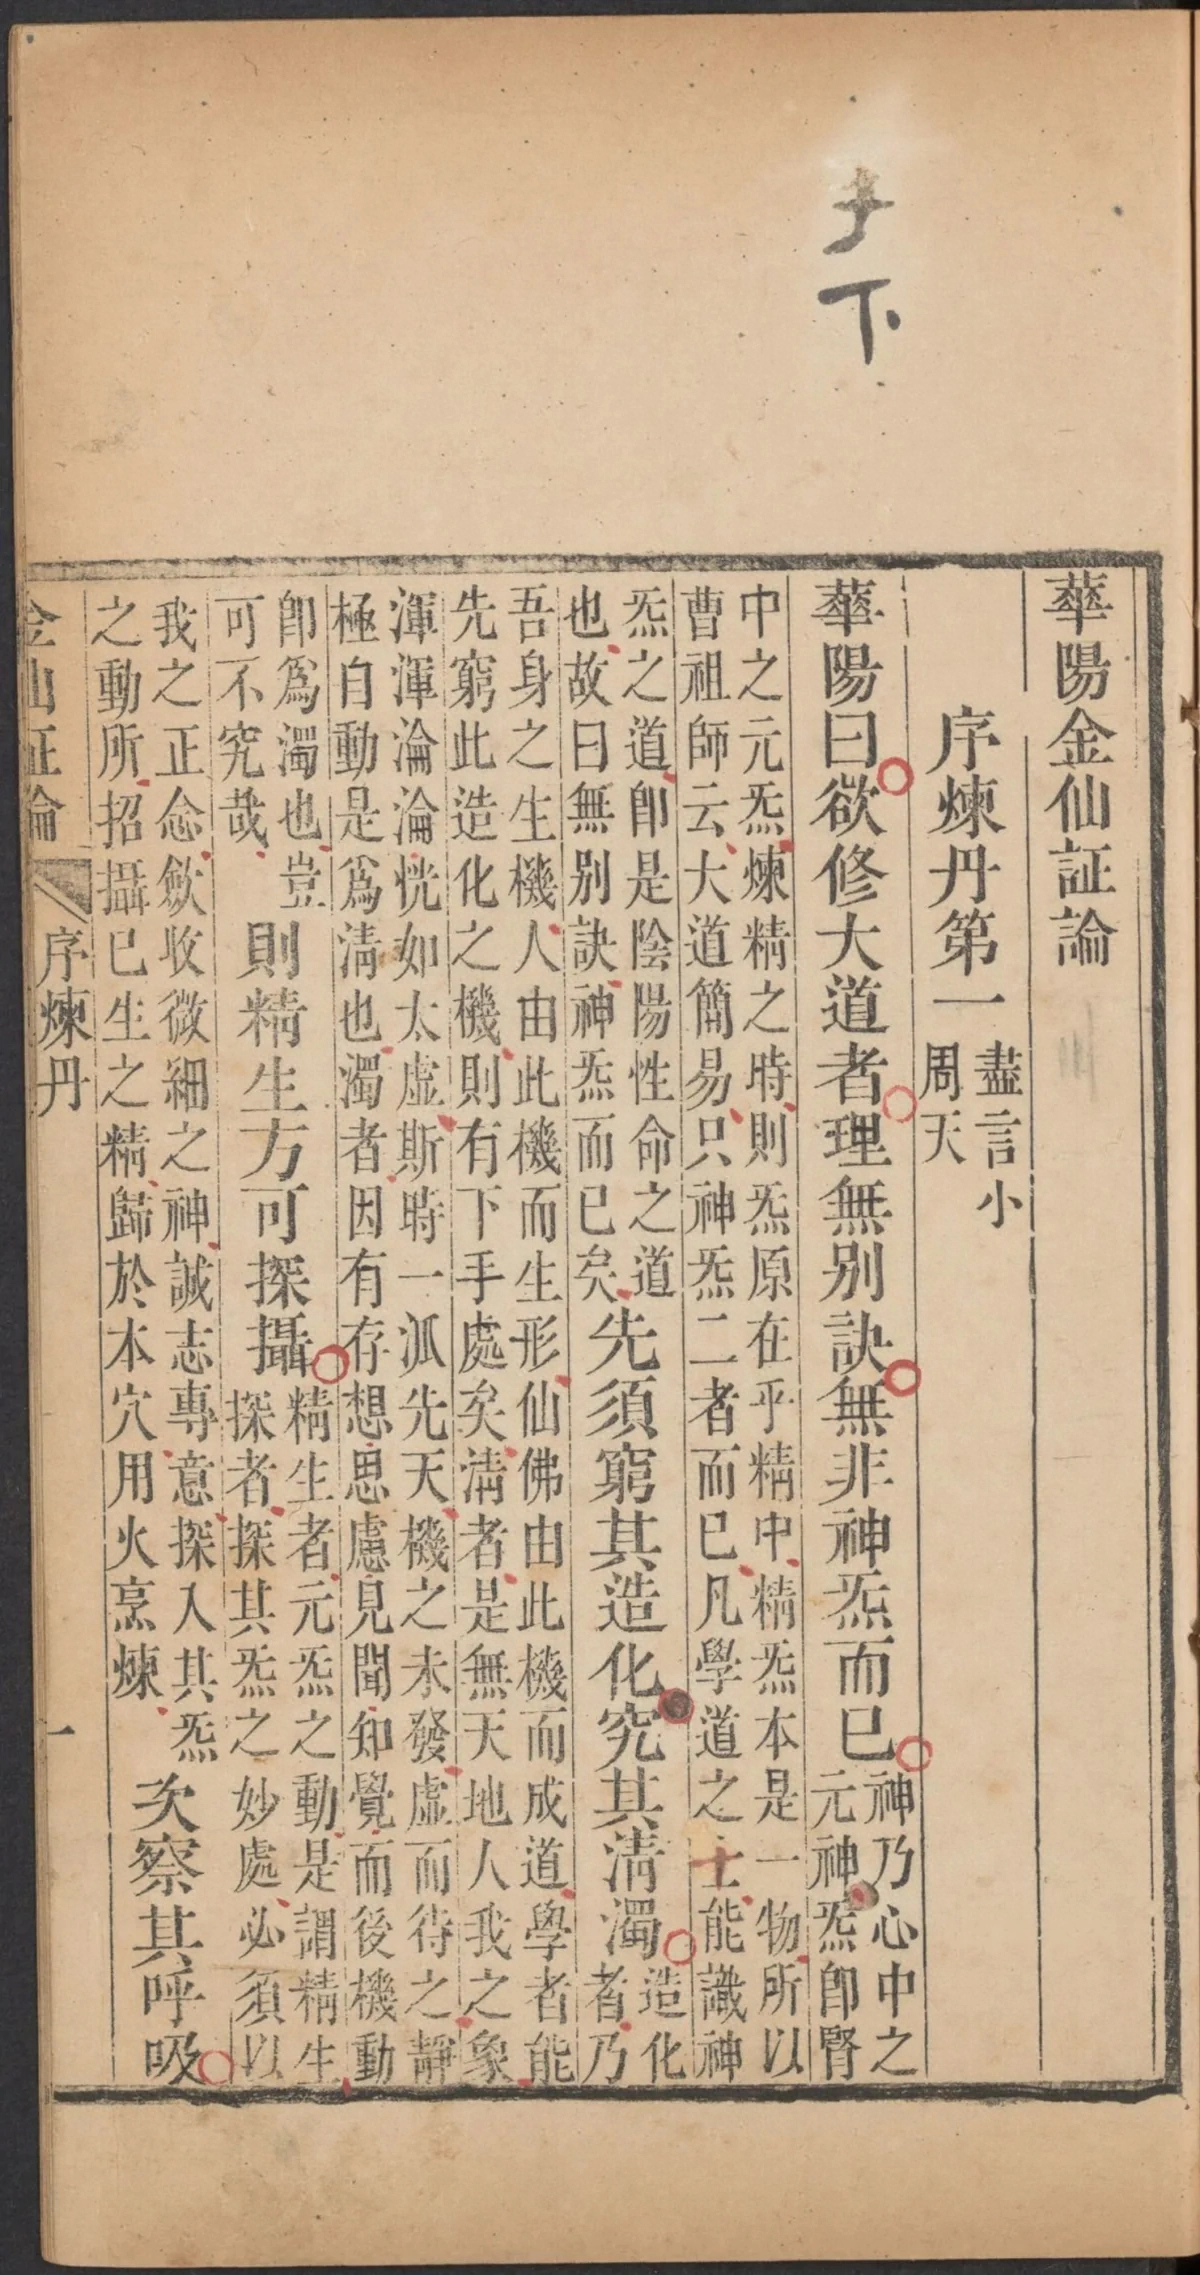 下
華陽金仙証論
序煉丹第一
盡言小
周天
華陽曰欲修大道者理無別訣無非神炁而已
神乃心中之
元神炁卽腎
中之元炁煉精之時則炁原在乎精中精炁本是一物所以
曹祖師云大道簡易只神炁二者而已凡學道之士能識神
炁之道卽是陰陽性命之道
也故曰無別訣神炁而已矣
先須窮其造化究其淸濁
造化
者乃
吾身之生機人由此機而生形仙佛由此機而成道學者能
先窮此造化之機則有下手處矣淸者是無天地人我之象
渾渾淪淪恍如太虛斯時一派先天機之未發虛而待之靜
極自動是爲淸也濁者因有存想思慮見聞知覺而後機動
卽爲濁也豈
可不究哉
則精生方可採攝
精生者元炁之動是謂精生
採者採其炁之妙處必須以
我之正念歛收微細之神誠志專意採入其炁
之動所招攝已生之精歸於本穴用火烹煉
次察其呼吸
金仙証論
序煉丹
一